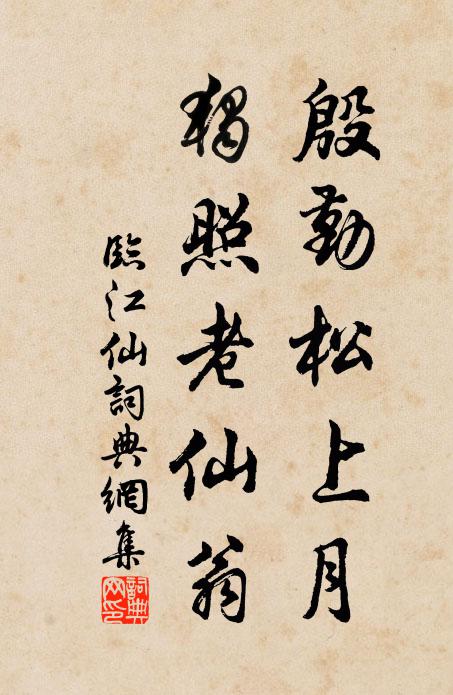 殷勤松上月
獨照老仙翁
臨江仙詞典網集
詞典网印